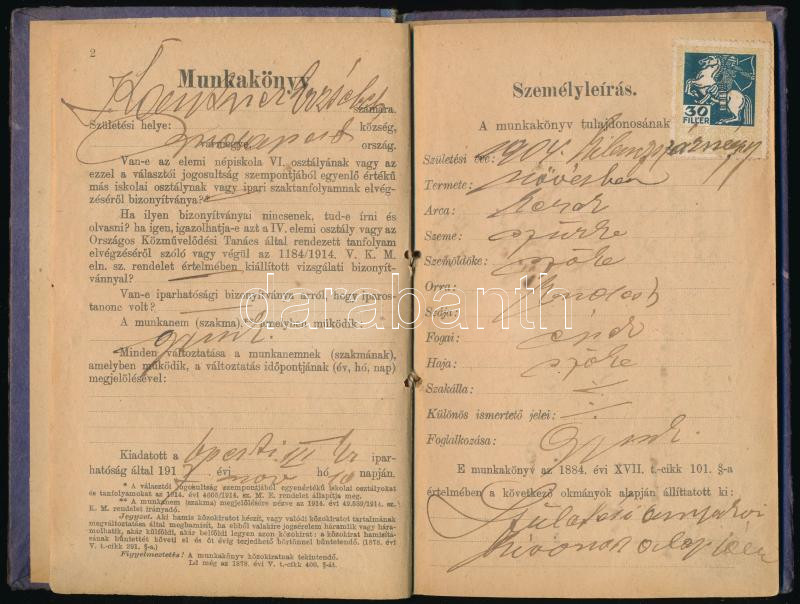 2
Munkakönyv
Erzsébet
számára.
Születési helye: Budapest község,
vármegye, ország.
Van-e az elemi népiskola VI. osztályának vagy az
ezzel a választói jogosultság szempontjából egyenlő értékű
más iskolai osztálynak vagy ipari szaktanfolyamnak elvég-
zéséről bizonyítványa?
Ha ilyen bizonyítványai nincsenek, tud-e írni és
olvasni? ha igen, igazolhatja-e azt a IV. elemi osztály vagy az
Országos Közművelődési Tanács által rendezett tanfolyam
elvégzéséről szóló vagy végül az 1184/1914. V. K. M.
eln. sz. rendelet értelmében kiállított vizsgálati bizonyít-
vánnyal?
Van-e iparhatósági bizonyítványa arról, hogy iparos-
tanonc volt?
A munkanem (szakma),** amelyben működik:
gyári
Minden változtatása a munkanemnek (szakmának),
amelyben működik, a változtatás időpontjának (év, hó, nap)
megjelölésével:
Kiadatott a bpesti III ker ipar-
hatóság által 1917 évi nov hó napján.
* A választói jogosultság szempontjából egyenértékű iskolai osztályokat
és tanfolyamokat az 1914. évi 4605/1914. sz. M. E. rendelet állapítja meg.
** A munkanem (szakma) megjelölésére nézve az 1914. évi 49.689/1914. sz.
K. M. rendelet irányadó.
Jegyzet. Aki hamis közokiratot készít, vagy valódi közokiratot tartalmának
megváltoztatása által meghamisít, ha ebből valakire jogsérelem háramlik vagy hára-
molhatik, akár külföldi, akár belföldi legyen azon közokirat: a közokirat hamisítá-
sának büntettét követi el és öt évig terjedhető börtönnel büntetendő. (1878. évi
V. t.-cikk 391. §-a.)
Figyelmeztetés! A munkakönyv közokiratnak tekintendő.
Ld még az 1878. évi V. t.-cikk 400. §-át.
Személyleírás.
30
FILLÉR
A munkakönyv tulajdonosának
Születési éve: 1904.
Termete: növésben
Arca: kerek
Szeme: szürke
Szemöldöke: szőke
Orra: rendes
Szája:
Fogai: épek
Haja: szőke
Szakálla: ./.
Különös ismertető jelei: ./.
Foglalkozása: gyári
E munkakönyv az 1884. évi XVII. t.-cikk 101. §-a
értelmében a következő okmányok alapján állíttatott ki:
Születési anyakvi
kivonat alapján
darabanth